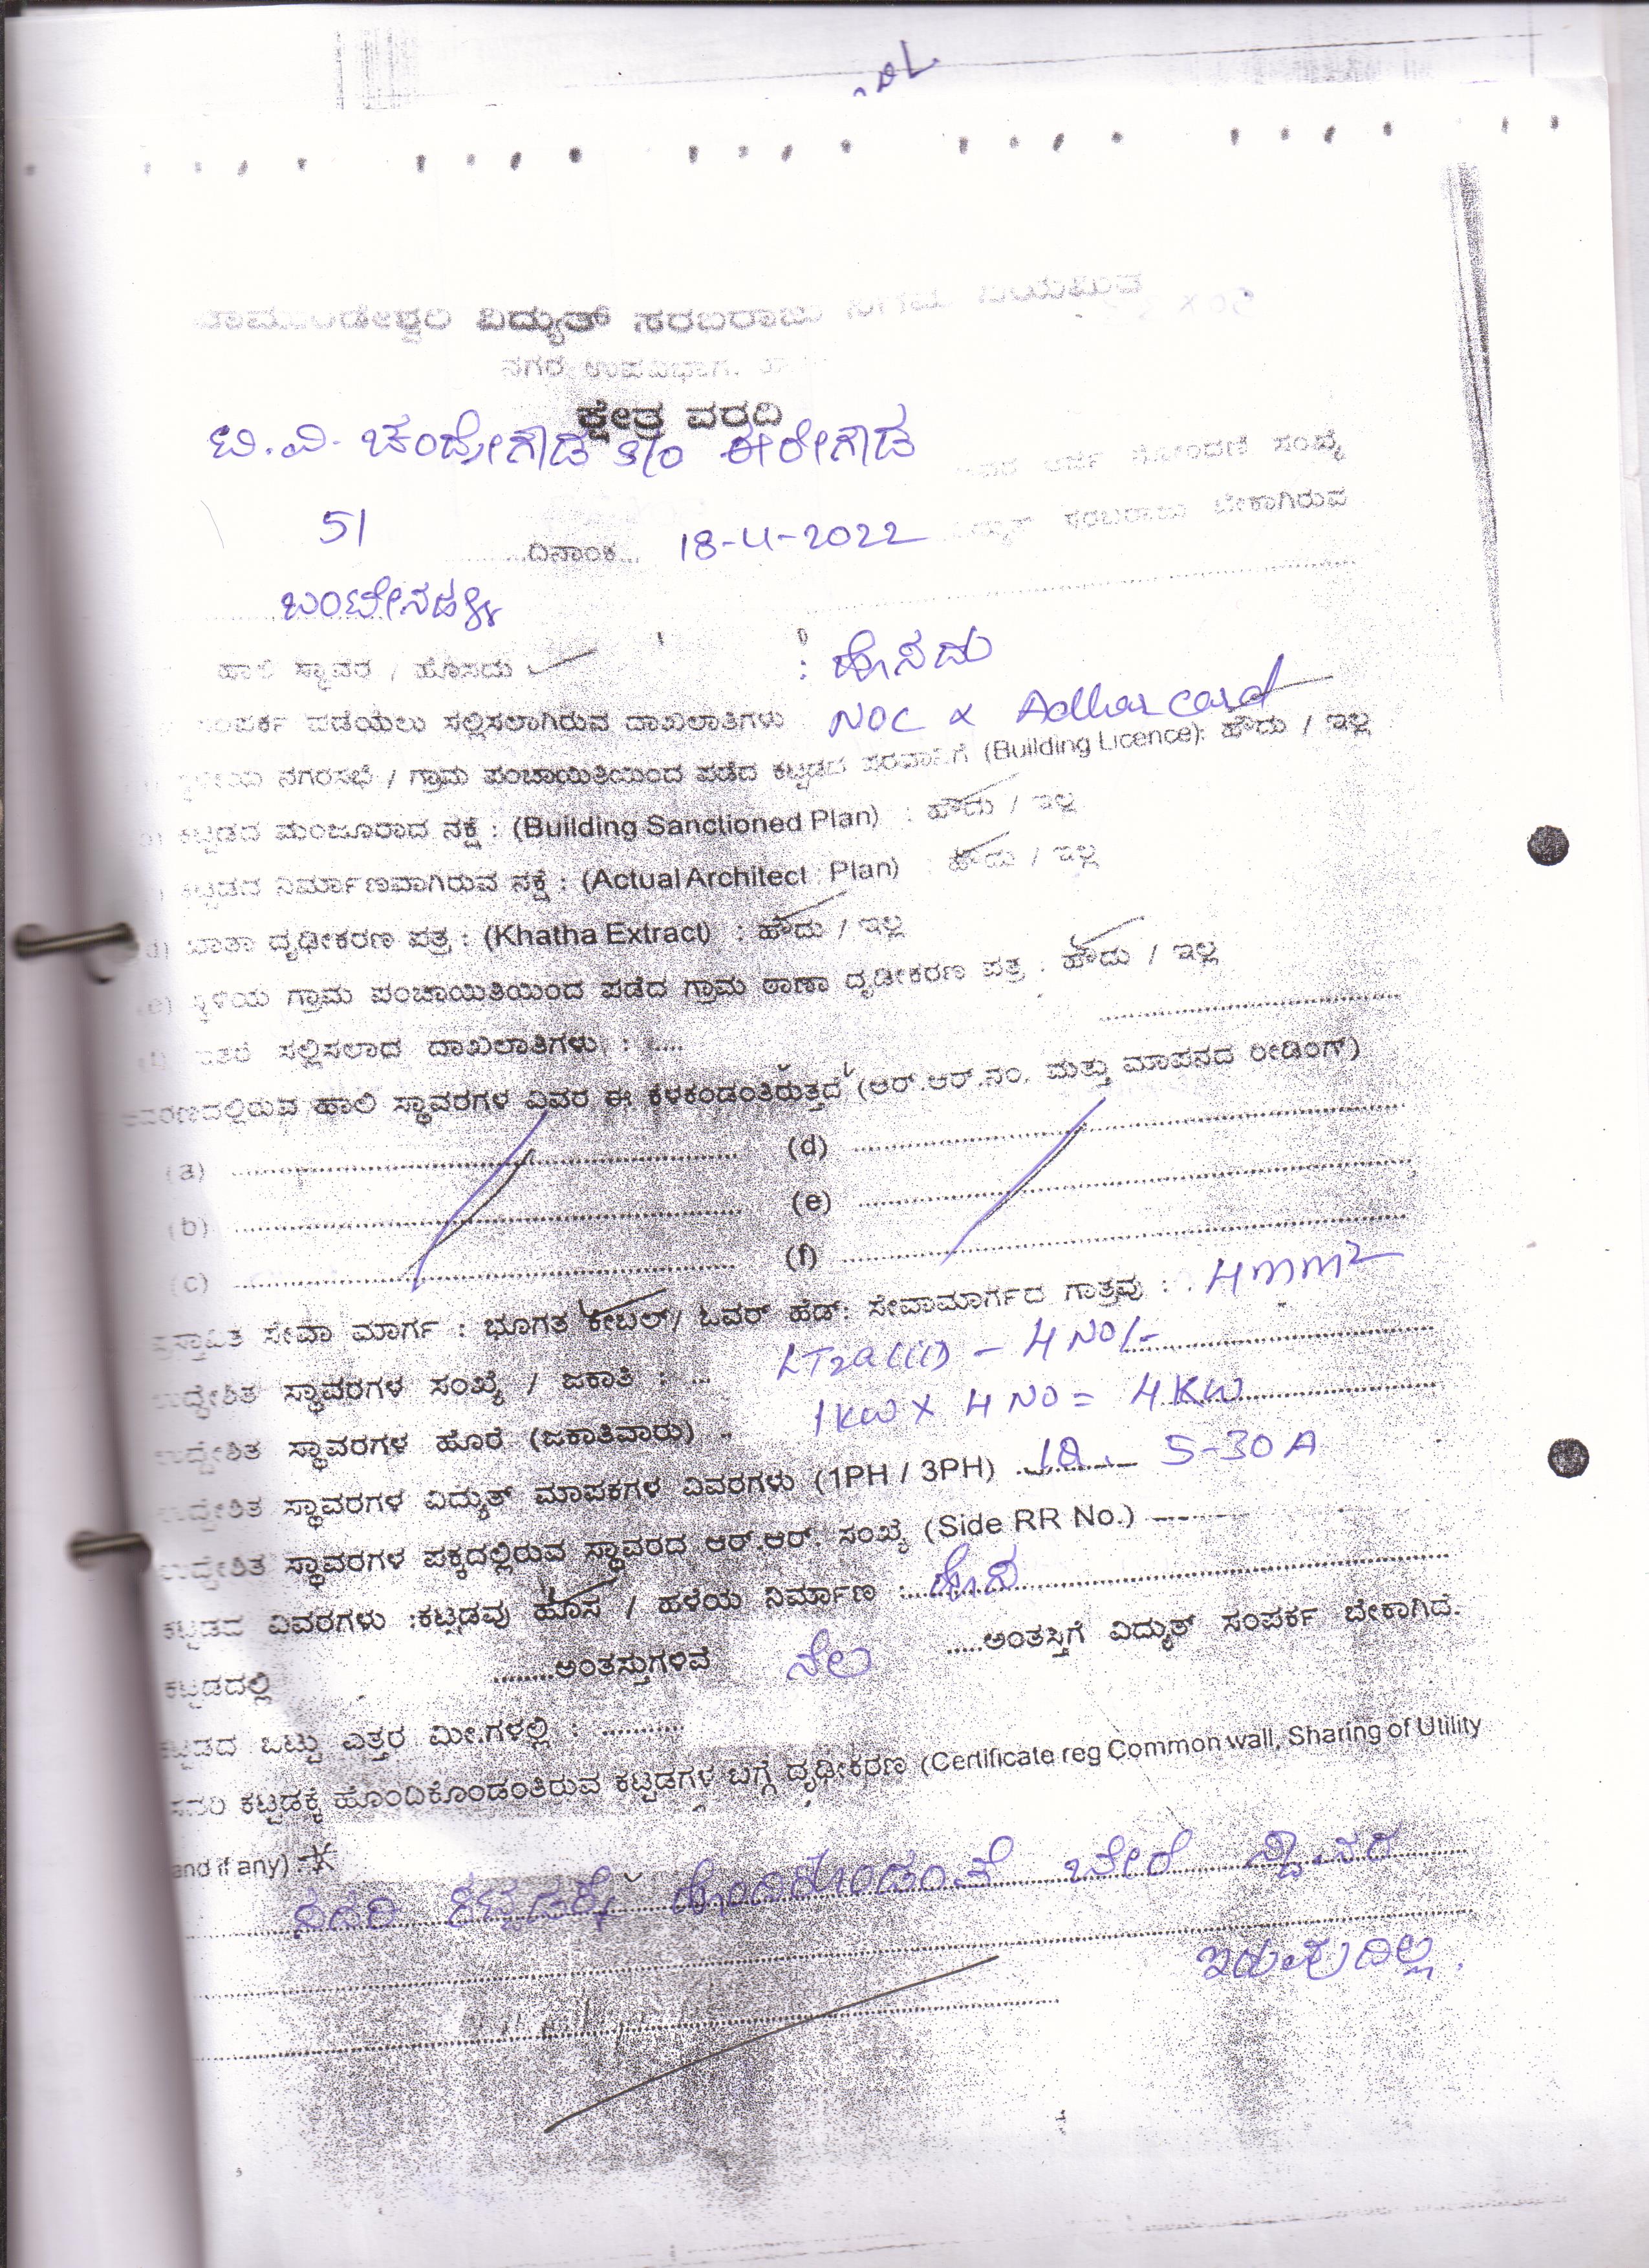 ಚಾಮುಂಡೇಶ್ವರಿ ವಿದ್ಯುತ್ ಸರಬರಾಜು ನಿಗಮ ನಿಯಮಿತ
ನಗರ ಉಪವಿಭಾಗ,
ಕ್ಷೇತ್ರ ವರದಿ
ಬಿ.ವಿ. ಚಂದ್ರೇಗೌಡ S/o ಈರೇಗೌಡ ಅರ್ಜಿ ನೋಂದಣಿ ಸಂಖ್ಯೆ
51 .......ದಿನಾಂಕ... 18-4-2022 ವಿದ್ಯುತ್ ಸರಬರಾಜು ಬೇಕಾಗಿರುವ
ಬಂಟೇನಹಳ್ಳಿ
ಹಾಲಿ ಸ್ಥಾವರ / ಹೊಸದು : ಹೊಸದು
ಸಂಪರ್ಕ ಪಡೆಯಲು ಸಲ್ಲಿಸಲಾಗಿರುವ ದಾಖಲಾತಿಗಳು NOC & Adhar card
ಸ್ಥಳೀಯ ನಗರಸಭೆ / ಗ್ರಾಮ ಪಂಚಾಯಿತಿಯಿಂದ ಪಡೆದ ಕಟ್ಟಡದ ಪರವಾನಿಗೆ (Building Licence): ಹೌದು / ಇಲ್ಲ
b) ಕಟ್ಟಡದ ಮಂಜೂರಾದ ನಕ್ಷೆ : (Building Sanctioned Plan) : ಹೌದು / ಇಲ್ಲ
) ಕಟ್ಟಡದ ನಿರ್ಮಾಣವಾಗಿರುವ ನಕ್ಷೆ : (Actual Architect Plan) : ಹೌದು / ಇಲ್ಲ
d) ಖಾತಾ ದೃಢೀಕರಣ ಪತ್ರ : (Khatha Extract) : ಹೌದು / ಇಲ್ಲ
(e) ಸ್ಥಳಿಯ ಗ್ರಾಮ ಪಂಚಾಯಿತಿಯಿಂದ ಪಡೆದ ಗ್ರಾಮ ಠಾಣಾ ದೃಡೀಕರಣ ಪತ್ರ : ಹೌದು / ಇಲ್ಲ
(f) ಇತರೆ ಸಲ್ಲಿಸಲಾದ ದಾಖಲಾತಿಗಳು : .....
ಆವರಣದಲ್ಲಿರುವ ಹಾಲಿ ಸ್ಥಾವರಗಳ ವಿವರ ಈ ಕೆಳಕಂಡಂತಿರುತ್ತದೆ (ಆರ್.ಆರ್.ನಂ. ಮತ್ತು ಮಾಪನದ ರೀಡಿಂಗ್)
(a) .......... (d) ..........
(b) .......... (e) ..........
(c) .......... (f) ..........
ಪ್ರಸ್ತಾವಿತ ಸೇವಾ ಮಾರ್ಗ : ಭೂಗತ ಕೇಬಲ್ / ಓವರ್ ಹೆಡ್: ಸೇವಾಮಾರ್ಗದ ಗಾತ್ರವು : 4mm2
ಉದ್ದೇಶಿತ ಸ್ಥಾವರಗಳ ಸಂಖ್ಯೆ / ಜಕಾತಿ : ... LT2a(ii) - 4 NO/-
ಉದ್ದೇಶಿತ ಸ್ಥಾವರಗಳ ಹೊರೆ (ಜಕಾತಿವಾರು) .. 1KW X 4 NO = 4KW
ಉದ್ದೇಶಿತ ಸ್ಥಾವರಗಳ ವಿದ್ಯುತ್ ಮಾಪಕಗಳ ವಿವರಗಳು (1PH / 3PH) ... 5-30 A
ಉದ್ದೇಶಿತ ಸ್ಥಾವರಗಳ ಪಕ್ಕದಲ್ಲಿರುವ ಸ್ಥಾವರದ ಆರ್.ಆರ್. ಸಂಖ್ಯೆ (Side RR No.) --------
ಕಟ್ಟಡದ ವಿವರಗಳು :ಕಟ್ಟಡವು ಹೊಸ / ಹಳೆಯ ನಿರ್ಮಾಣ : ಹೊಸ
ಕಟ್ಟಡದಲ್ಲಿ ........ಅಂತಸ್ತುಗಳಿವೆ ನೆಲ .....ಅಂತಸ್ತಿಗೆ ವಿದ್ಯುತ್ ಸಂಪರ್ಕ ಬೇಕಾಗಿದೆ.
ಕಟ್ಟಡದ ಒಟ್ಟು ಎತ್ತರ ಮೀ.ಗಳಲ್ಲಿ : ...........
ಸದರಿ ಕಟ್ಟಡಕ್ಕೆ ಹೊಂದಿಕೊಂಡಂತಿರುವ ಕಟ್ಟಡಗಳ ಬಗ್ಗೆ ದೃಢೀಕರಣ (Certificate reg Common wall, Sharing of Utility
and if any) :
ಸದರಿ ಕಟ್ಟಡಕ್ಕೆ ಹೊಂದಿಕೊಂಡಂತೆ ಬೇರೆ ಸ್ಥಾವರ
ಇರುವುದಿಲ್ಲ.